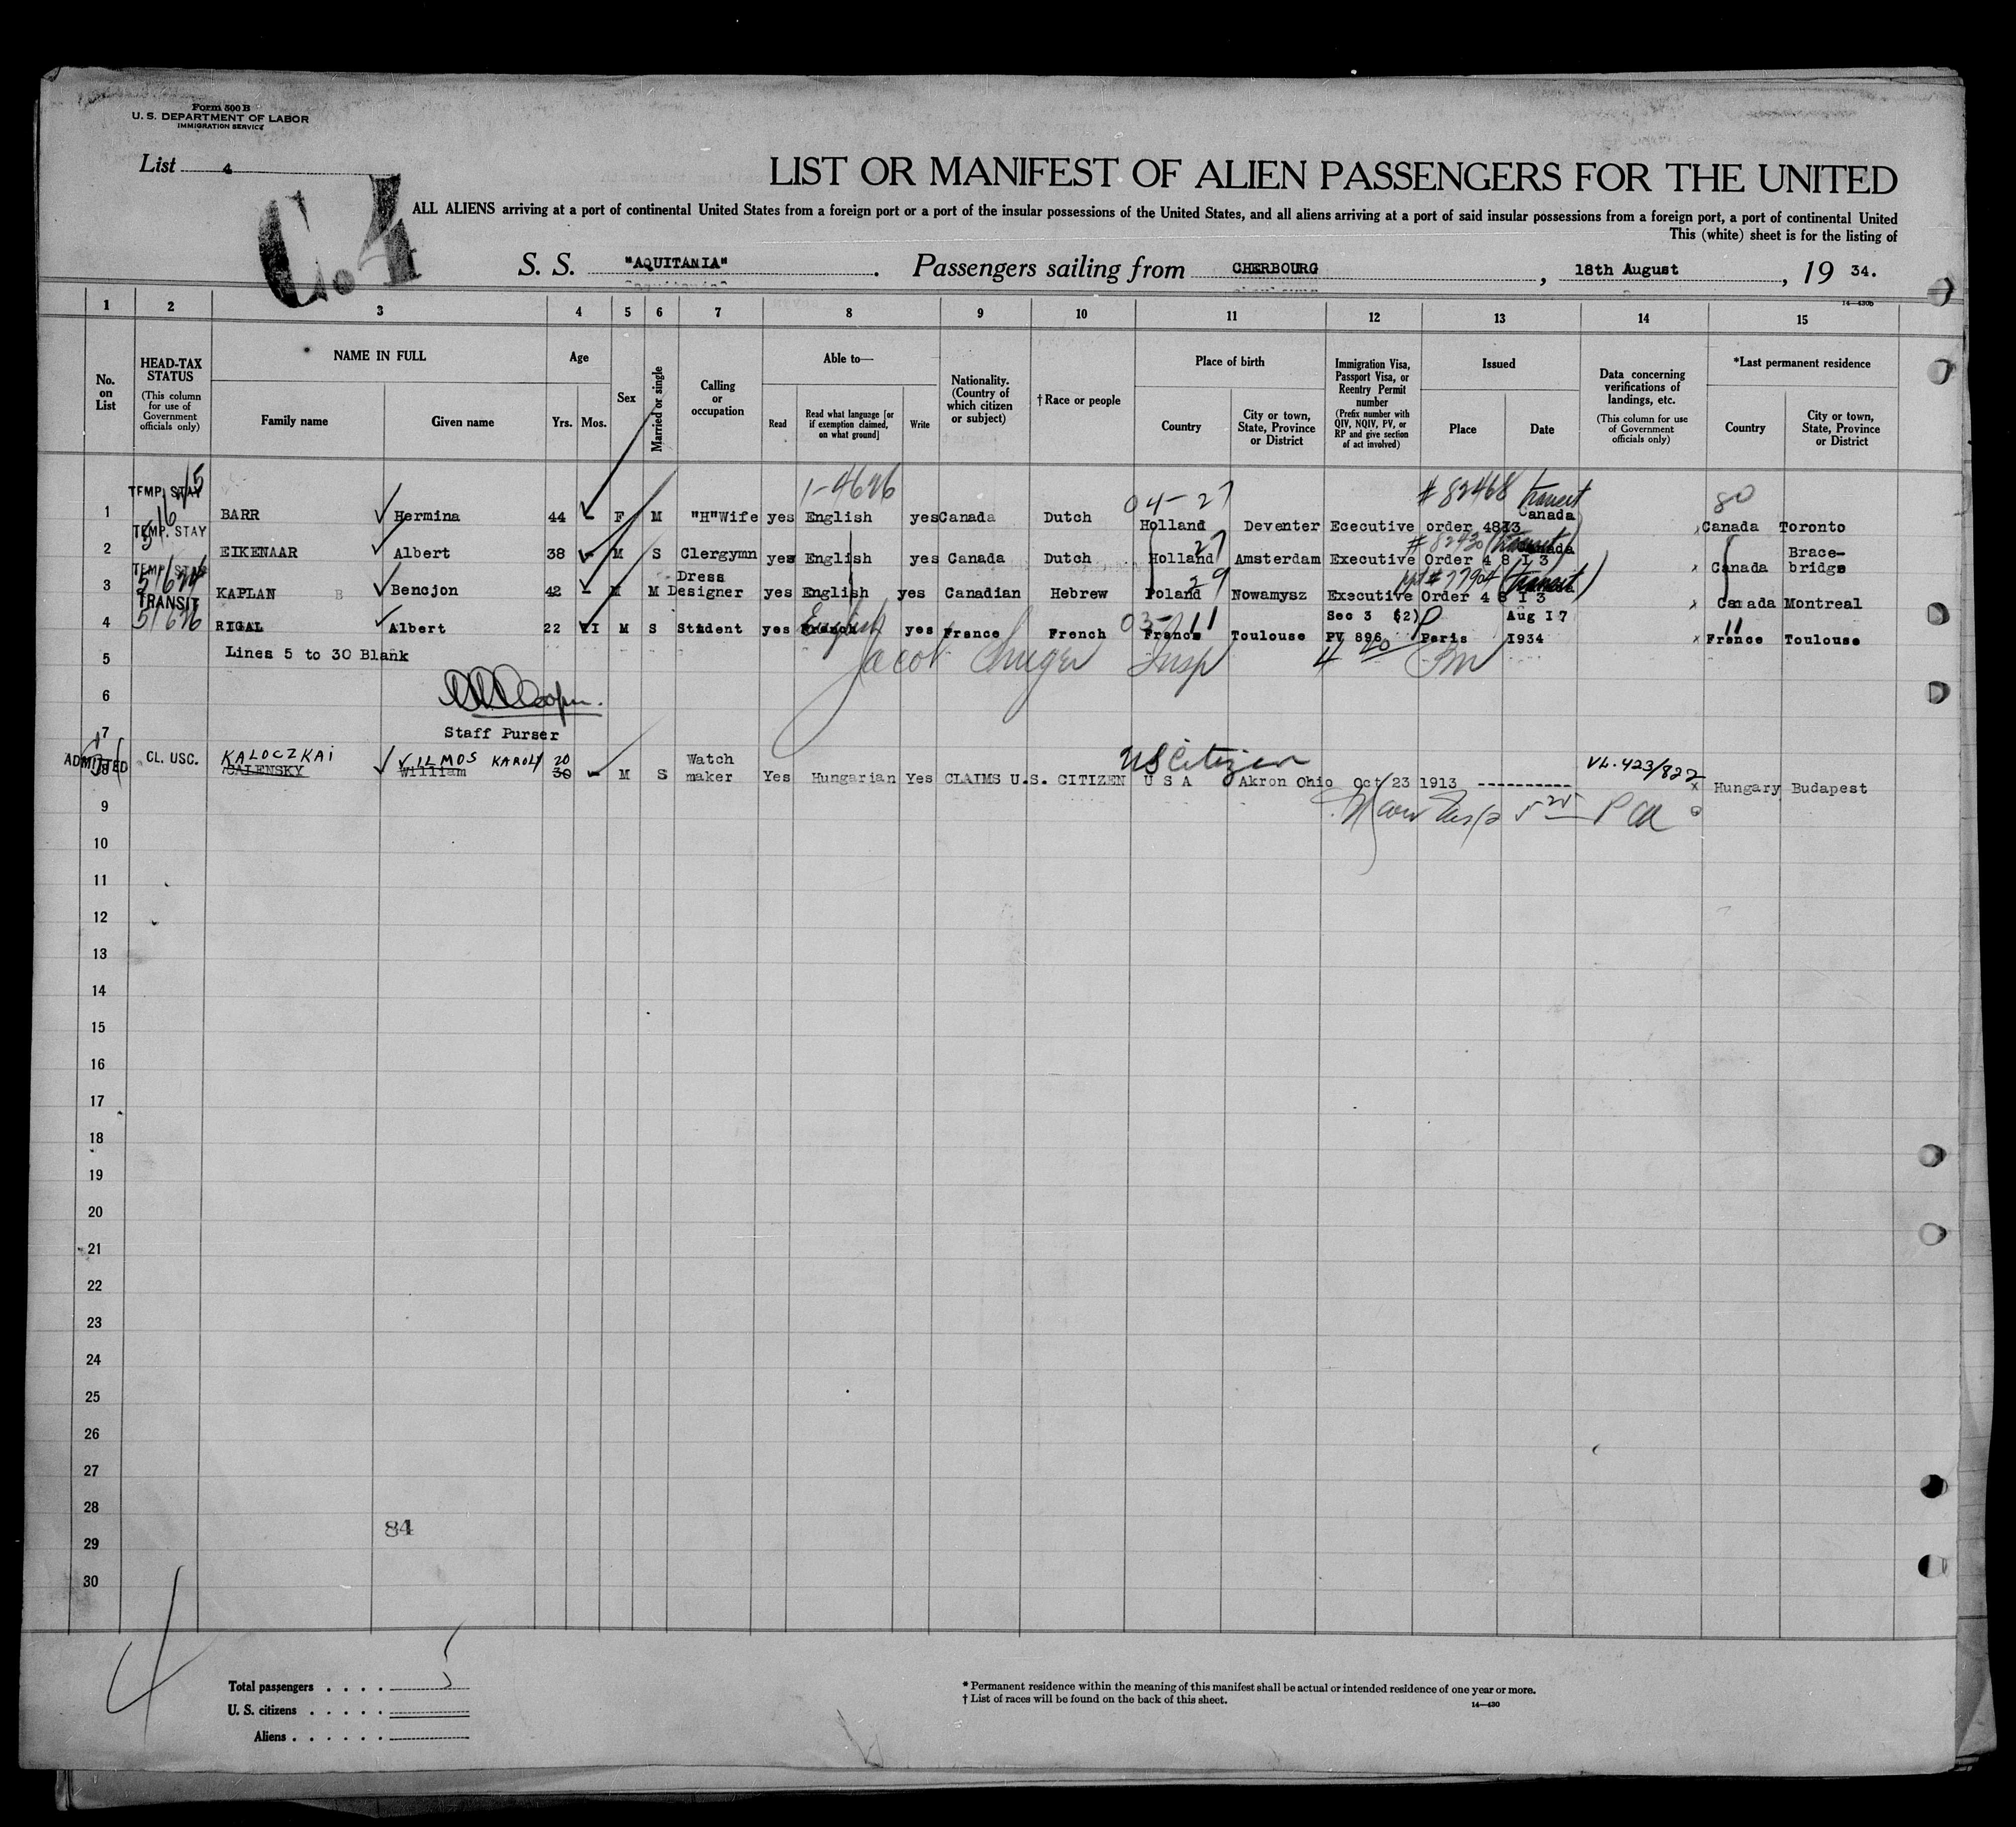 Form 500 B
U. S. DEPARTMENT OF LABOR
IMMIGRATION SERVICE
List 4
C.4
LIST OR MANIFEST OF ALIEN PASSENGERS FOR THE UNITED
ALL ALIENS arriving at a port of continental United States from a foreign port or a port of the insular possessions of the United States, and all aliens arriving at a port of said insular possessions from a foreign port, a port of continental United
This (white) sheet is for the listing of
S. S. "AQUITANIA". Passengers sailing from CHERBOURG, 18th August, 19 34.
14—430b
1 2 3 4 5 6 7 8 9 10 11 12 13 14 15
No. on List
HEAD-TAX STATUS (This column for use of Government officials only)
NAME IN FULL
Family name Given name
Age
Yrs. Mos.
Sex
Married or single
Calling or occupation
Able to—
Read Read what language [or if exemption claimed, on what ground] Write
Nationality. (Country of which citizen or subject)
†Race or people
Place of birth
Country City or town, State, Province or District
Immigration Visa, Passport Visa, or Reentry Permit number (Prefix number with QIV, NQIV, PV, or RP and give section of act involved)
Issued
Place Date
Data concerning verifications of landings, etc. (This column for use of Government officials only)
*Last permanent residence
Country City or town, State, Province or District
1-4626 04-27 #82468 Transit 80
1 TEMP. STAY BARR Hermina 44 - F M "H"Wife yes English yes Canada Dutch Holland Deventer Ececutive order 4813 Canada Canada Toronto
27 #82430 (Transit)
2 TEMP. STAY EIKENAAR Albert 38 - M S Clergymn yes English yes Canada Dutch Holland Amsterdam Executive Order 4 8 I 3 Canada Canada Brace-bridge
29 (Transit)
3 TEMP. STAY KAPLAN B Bencjon 42 - M M Dress Designer yes English yes Canadian Hebrew Poland Nowamysz Executive Order 4 8 I 3 Canada Montreal
03-11
4 TRANSIT RIGAL Albert 22 II M S Student yes French English yes France French France Toulouse Sec 3 (2) PV 896 Paris Aug I7 I934 France Toulouse
5 Lines 5 to 30 Blank
Jacob Insp
6
Staff Purser
7
8 ADMITTED CL. USC. KALOCZKAI VILMOS KAROLY 20
William 30 - M S Watch maker Yes Hungarian Yes CLAIMS U.S. CITIZEN US Citizen U S A Akron Ohio Oct/23 1913 ---------- VL.423/822 x Hungary Budapest
9
10
11
12
13
14
15
16
17
18
19
20
21
22
23
24
25
26
27
28
84
29
30
4
Total passengers . . . . 5
U. S. citizens . . . . .
Aliens . . . . . .
* Permanent residence within the meaning of this manifest shall be actual or intended residence of one year or more.
† List of races will be found on the back of this sheet.
14—430